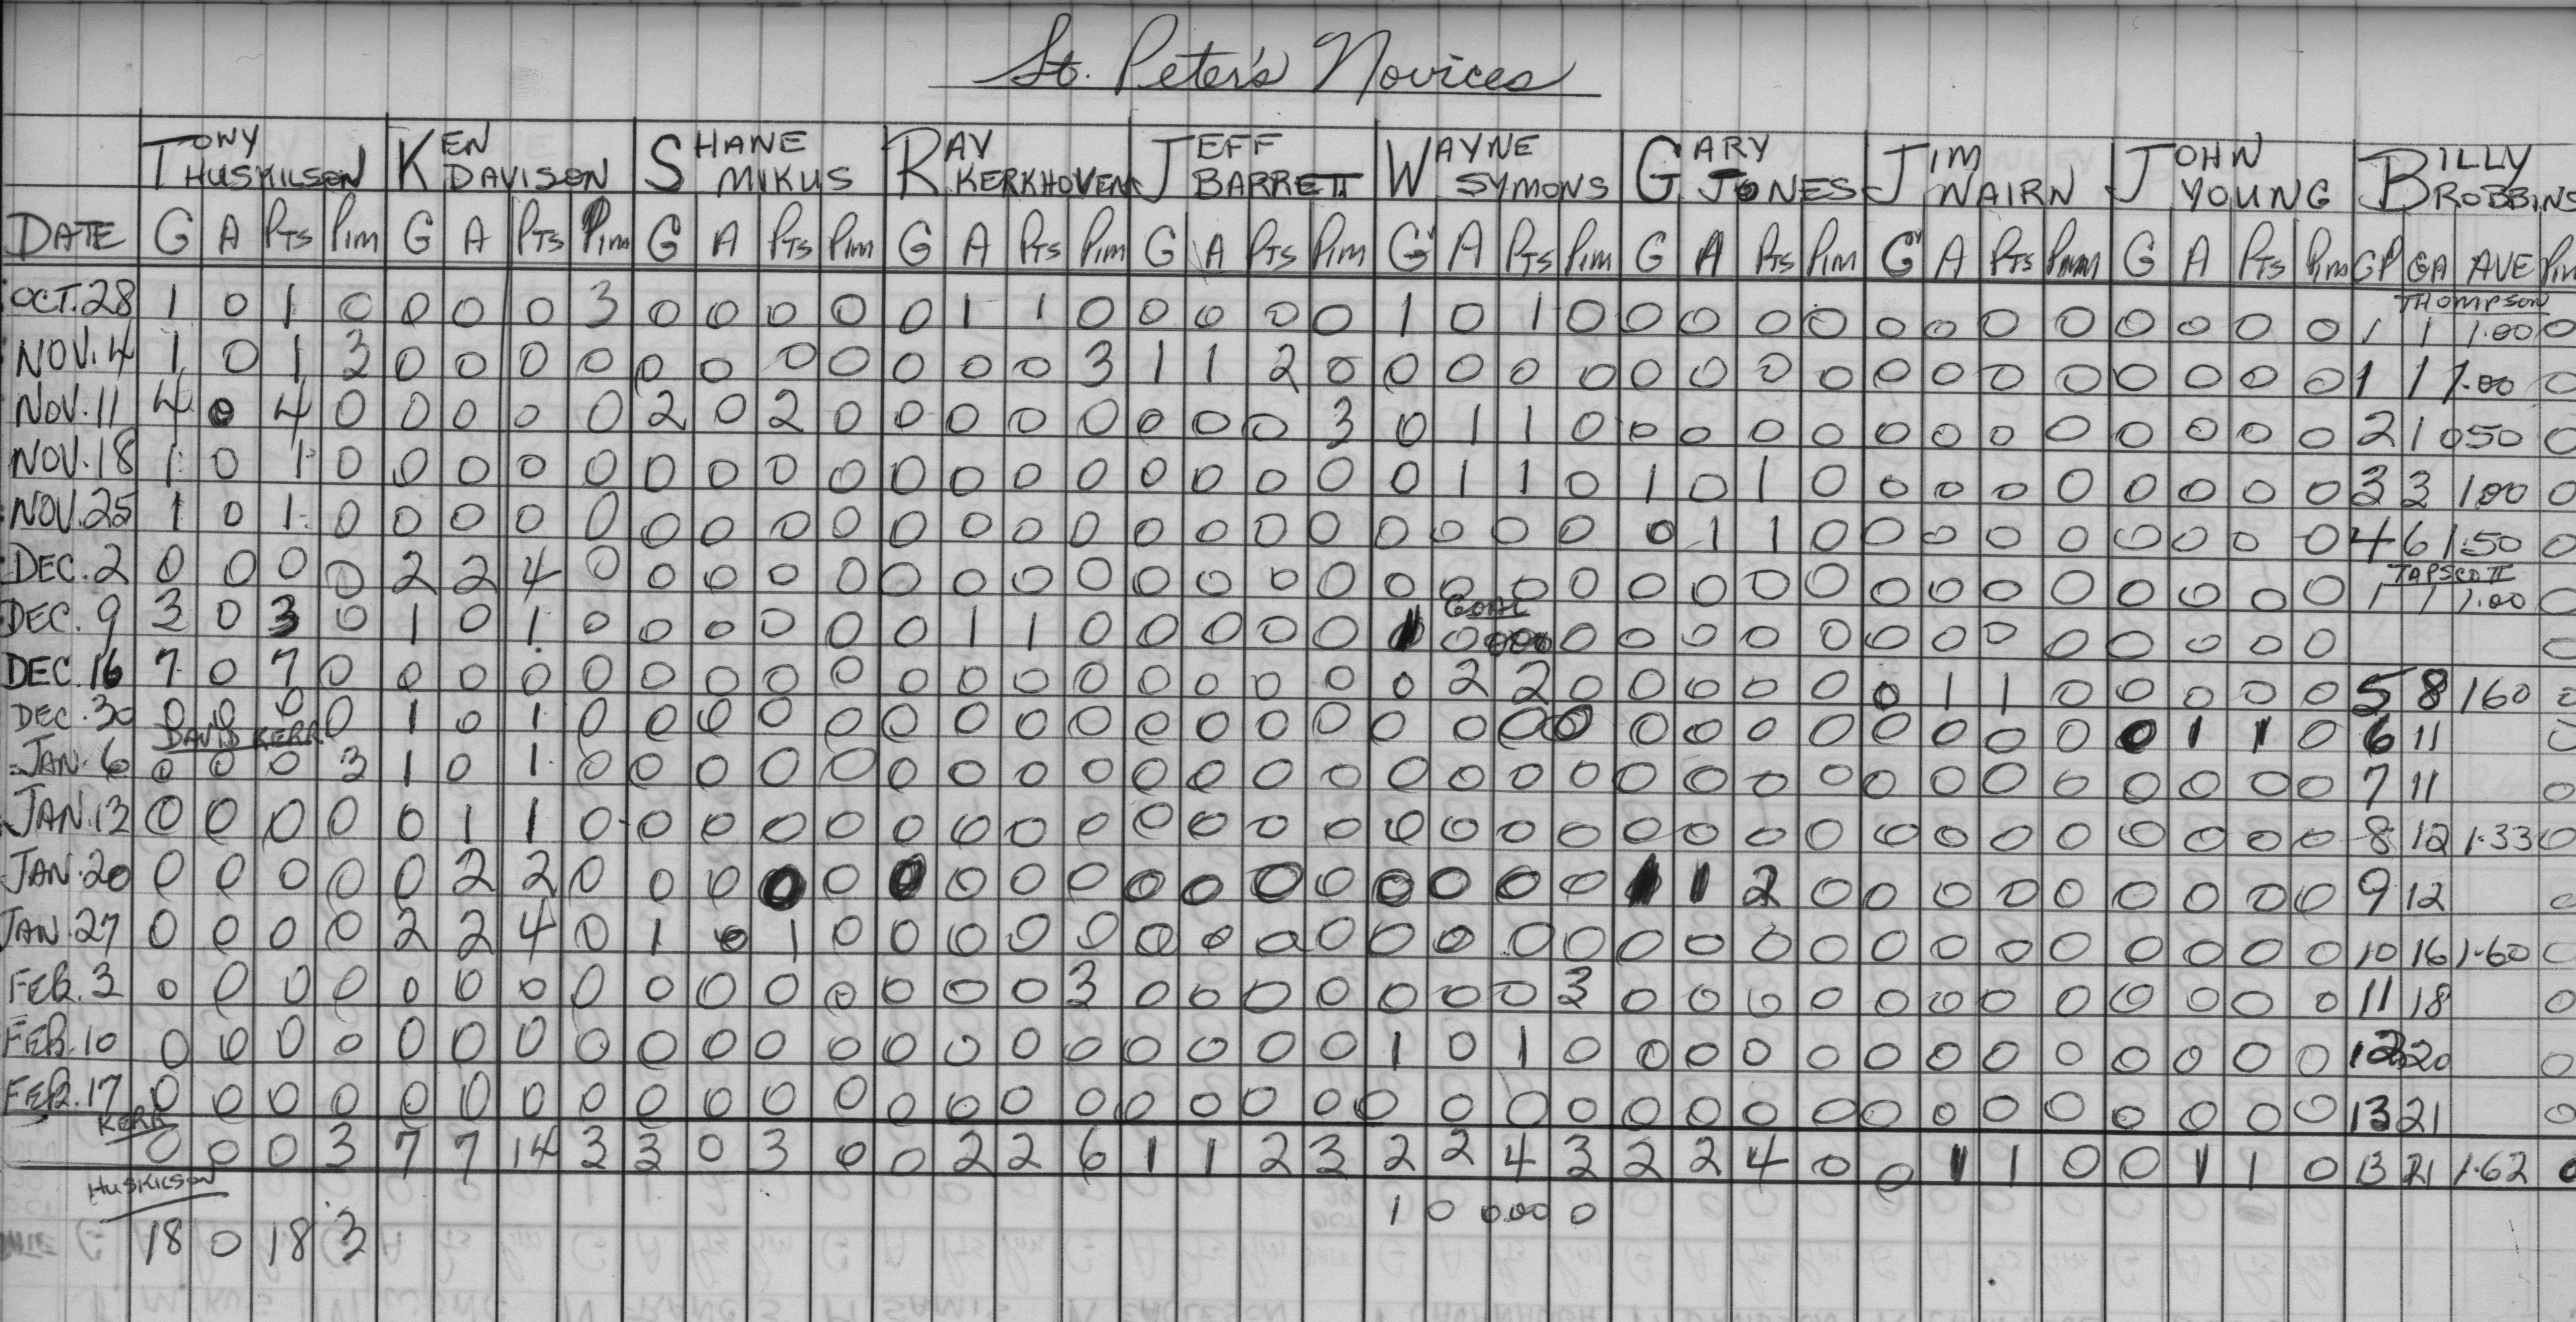 St. Peter's Novices
TONY HUSKILSON KEN DAVISON SHANE MIKUS RAY KERKHOVEN JEFF BARRETT WAYNE SYMONS GARY JONES JIM NAIRN JOHN YOUNG BILLY ROBBINS
DATE G A PTS PIM G A PTS PIM G A PTS PIM G A PTS PIM G A PTS PIM G A PTS PIM G A PTS PIM G A PTS PIM G A PTS PIM GP GA AVE PIM
THOMPSON
OCT. 28 1 0 1 0 0 0 0 3 0 0 0 0 0 1 1 0 0 0 0 0 1 0 1 0 0 0 0 0 0 0 0 0 0 0 0 0 1 1 1.00 0
NOV. 4 1 0 1 3 0 0 0 0 0 0 0 0 0 0 0 3 1 1 2 0 0 0 0 0 0 0 0 0 0 0 0 0 0 0 0 0 1 1 1.00 0
NOV. 11 4 0 4 0 0 0 0 0 2 0 2 0 0 0 0 0 0 0 0 3 0 1 1 0 0 0 0 0 0 0 0 0 0 0 0 0 2 1 050 0
NOV. 18 1 0 1 0 0 0 0 0 0 0 0 0 0 0 0 0 0 0 0 0 0 1 1 0 1 0 1 0 0 0 0 0 0 0 0 0 3 3 1.00 0
NOV. 25 1 0 1 0 0 0 0 0 0 0 0 0 0 0 0 0 0 0 0 0 0 0 0 0 0 1 1 0 0 0 0 0 0 0 0 0 4 6 1.50 0
TAPSCOTT
DEC. 2 0 0 0 0 2 2 4 0 0 0 0 0 0 0 0 0 0 0 0 0 0 0 0 0 0 0 0 0 0 0 0 0 0 0 0 0 1 1 1.00 0
GOAL
DEC. 9 3 0 3 0 1 0 1 0 0 0 0 0 0 1 1 0 0 0 0 0 1 0 000 0 0 0 0 0 0 0 0 0 0 0 0 0 0
DEC. 16 7 0 7 0 0 0 0 0 0 0 0 0 0 0 0 0 0 0 0 0 0 2 2 0 0 0 0 0 0 1 1 0 0 0 0 0 5 8 160 0
DEC. 30 0 0 0 0 1 0 1 0 0 0 0 0 0 0 0 0 0 0 0 0 0 0 0 0 0 0 0 0 0 0 0 0 0 1 1 0 6 11 0
DAVID KERR
JAN. 6 0 0 0 3 1 0 1 0 0 0 0 0 0 0 0 0 0 0 0 0 0 0 0 0 0 0 0 0 0 0 0 0 0 0 0 0 7 11 0
JAN. 13 0 0 0 0 0 1 1 0 0 0 0 0 0 0 0 0 0 0 0 0 0 0 0 0 0 0 0 0 0 0 0 0 0 0 0 0 8 12 1.33 0
JAN. 20 0 0 0 0 0 2 2 0 0 0 0 0 0 0 0 0 0 0 0 0 0 0 0 0 1 1 2 0 0 0 0 0 0 0 0 0 9 12 0
JAN. 27 0 0 0 0 2 2 4 0 1 0 1 0 0 0 0 0 0 0 0 0 0 0 0 0 0 0 0 0 0 0 0 0 0 0 0 0 10 16 1.60 0
FEB. 3 0 0 0 0 0 0 0 0 0 0 0 0 0 0 0 3 0 0 0 0 0 0 0 3 0 0 0 0 0 0 0 0 0 0 0 0 11 18 0
FEB. 10 0 0 0 0 0 0 0 0 0 0 0 0 0 0 0 0 0 0 0 0 1 0 1 0 0 0 0 0 0 0 0 0 0 0 0 0 12 20 0
FEB. 17 0 0 0 0 0 0 0 0 0 0 0 0 0 0 0 0 0 0 0 0 0 0 0 0 0 0 0 0 0 0 0 0 0 0 0 0 13 21 0
KERR
0 0 0 3 7 7 14 3 3 0 3 0 0 2 2 6 1 1 2 3 2 2 4 3 2 2 4 0 0 1 1 0 0 1 1 0 13 21 1.62 0
HUSKILSON
1 0 0.00 0
18 0 18 3